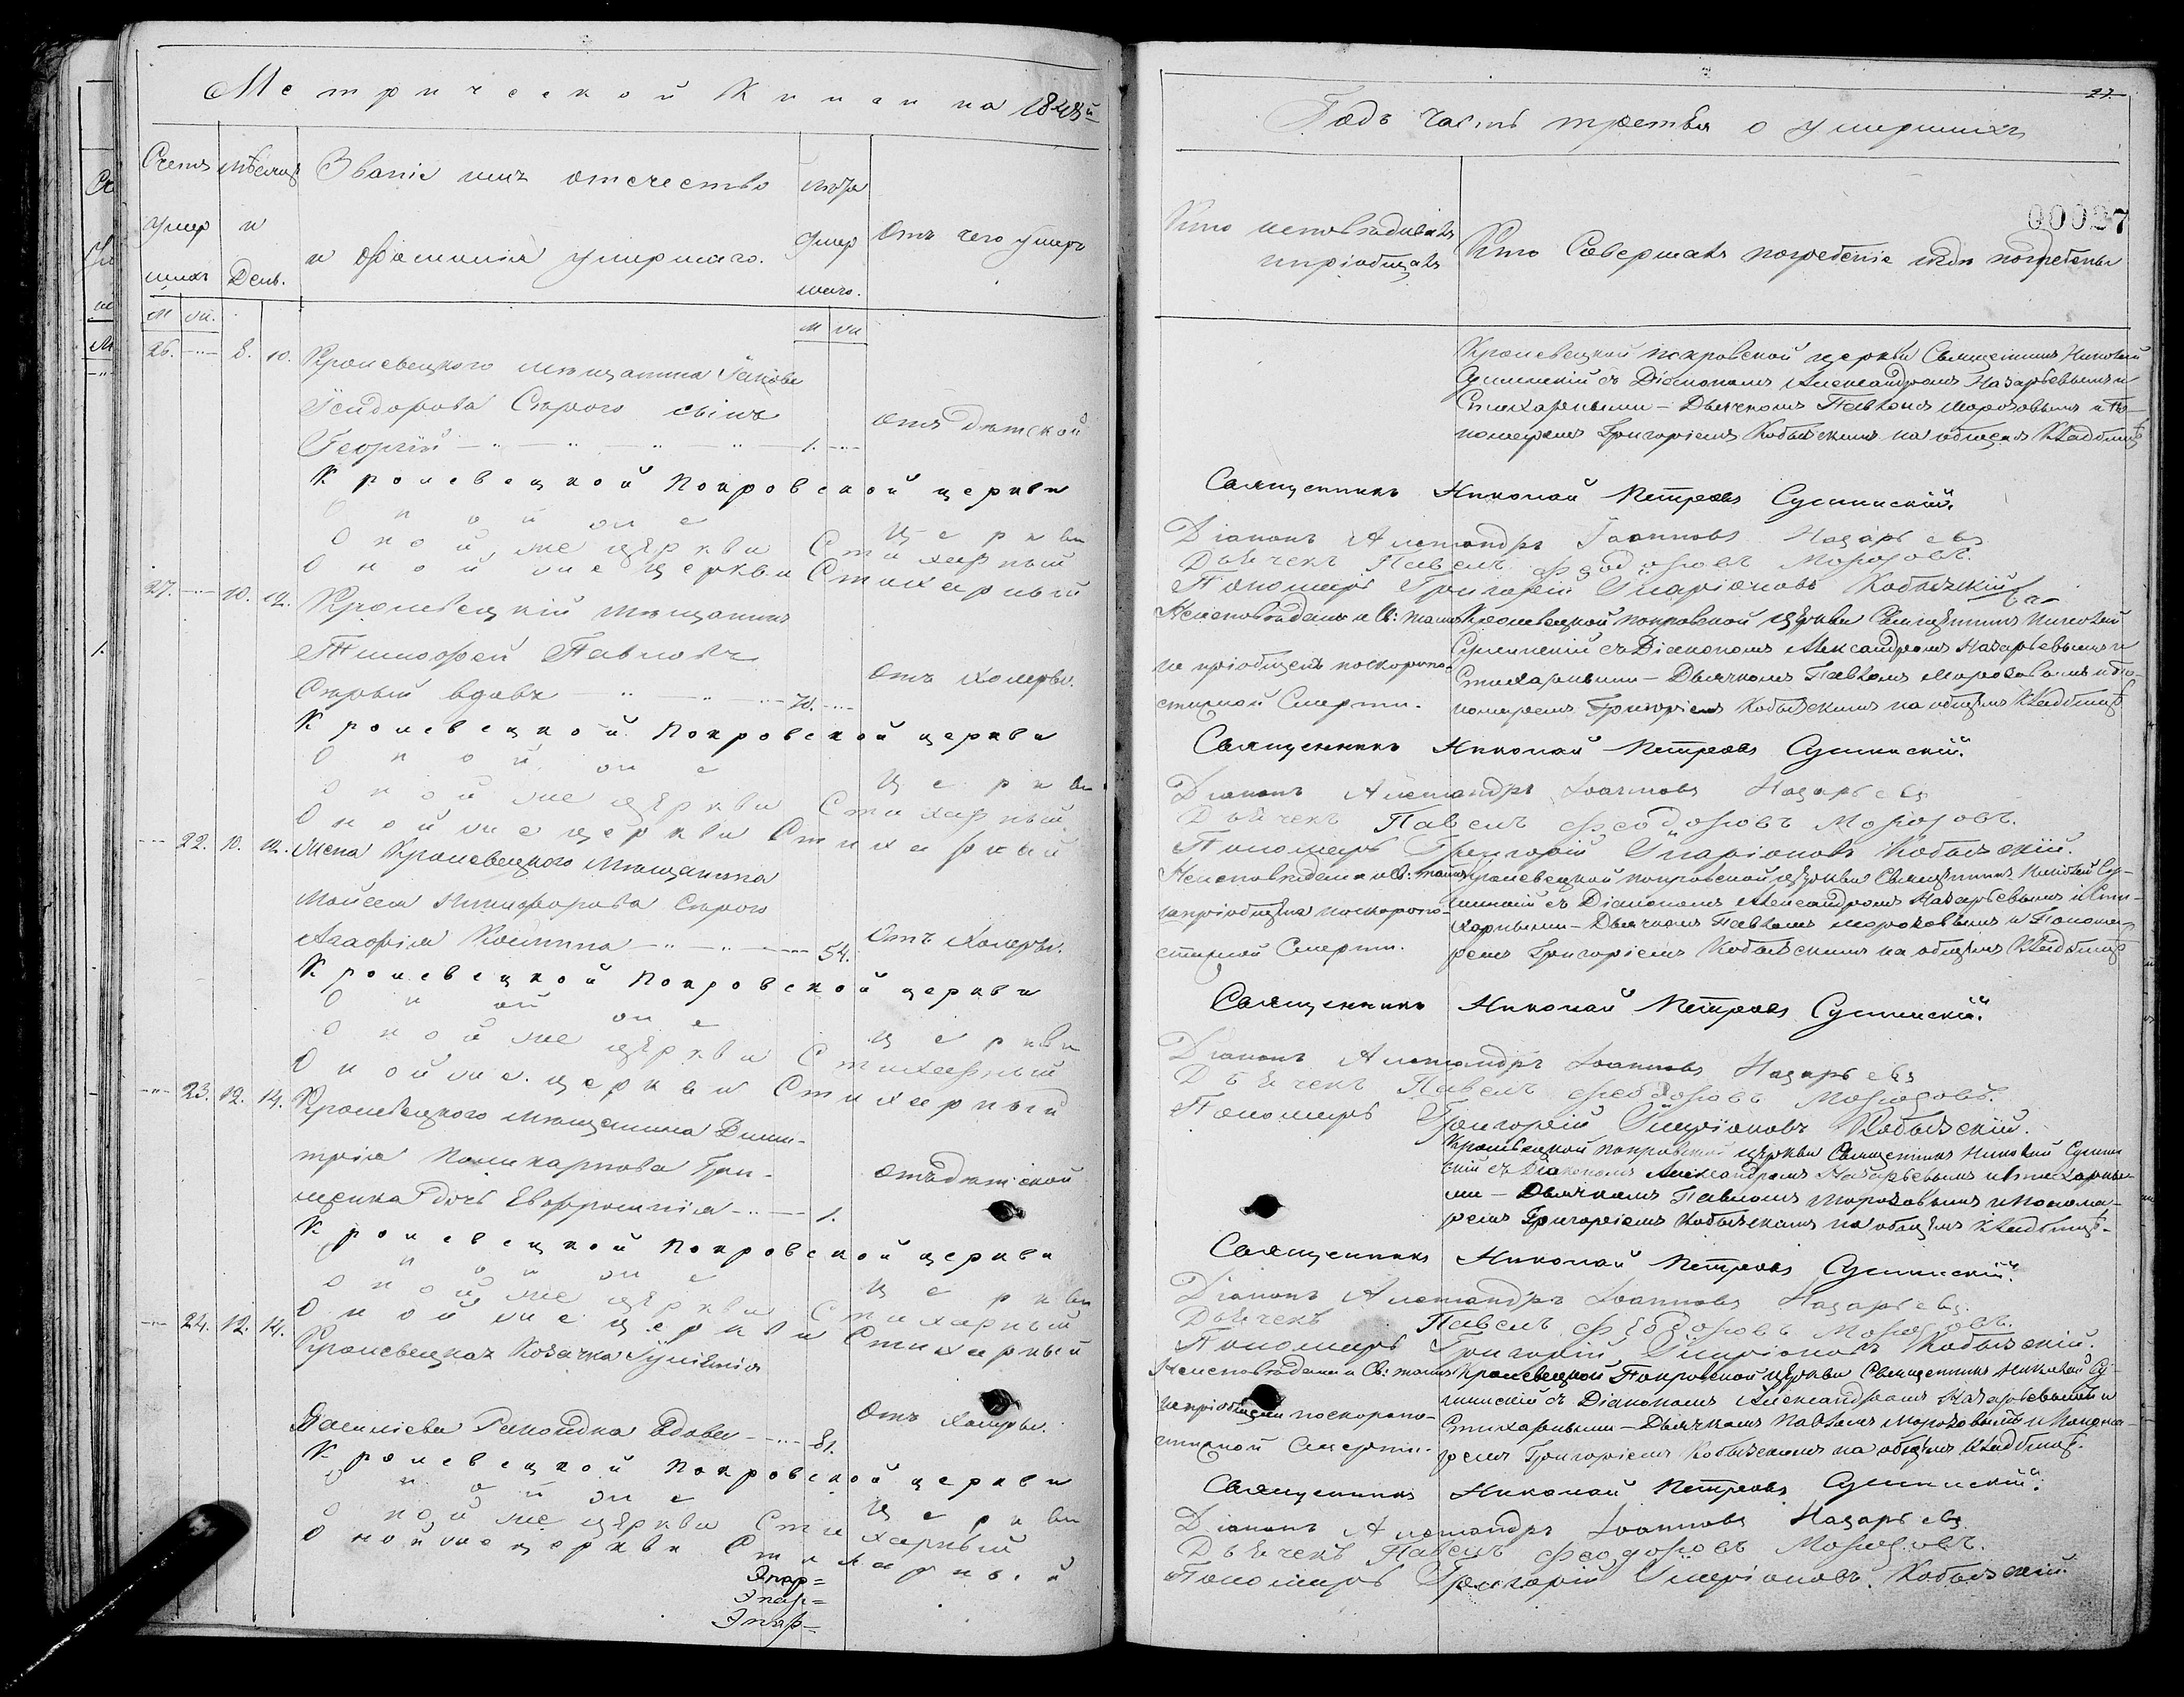 Метрической Книги на 1848й
Счетъ
умер
шихъ
Мѣсяцъ
и
День.
Званіе имя отечество
и фамилія умершаго.
лѣта
умер
шаго.
Отъ чего умеръ
М ж. М ж
26. 8. 10. Кролевецкого мѣщанина Іакова
Ісидорова Сѣрого сынъ
Георгій 1. Отъ дѣтской
Кролевецкой Покровской церкви
Оной же Церкви
Оной же церкви Стихарный
Оной же церкви Стихарный
27. 10. 12. Кролевецкій мѣщанинъ
Тимофей Павловъ
Сѣрый вдовъ 70. Отъ холеры.
Кролевецкой Покровской церкви
Оной же Церкви
Оной же церкви Стихарный
Оной же церкви Стихарный
22. 10. 12. Жена Кролевецкого мѣщанина
Мойсея Никифорова Сѣрого
Агафія 54. Отъ холеры.
Кролевецкой Покровской церкви
Оной же Церкви
Оной же церкви Стихарный
Оной же церкви Стихарный
23. 12. 14. Кролевецкого мѣщанина Дими-
трія Поликарпова Гри-
щенка дочь Евфросинія 1. Отъ дѣтской
Кролевецкой Покровской церкви
Оной же Церкви
Оной же церкви Стихарный
Оной же церкви Стихарный
24. 12. 14. Кролевецкая Козачка Іуліанія
Василіева вдова 81. Отъ холеры.
Кролевецкой Покровской церкви
Оной же Церкви
Оной же церкви Стихарный
Оной же церкви Стихарный
27.
Годъ часть третья о умершихъ
00027
Кто исповѣдывалъ
и пріобщалъ
Кто Совершалъ погребеніе и гдѣ погребены
Кролевецкой покровской церкви Священникъ Николай
Сулимскій съ Діакономъ Александромъ Назарьевымъ и
Стихарными - Дьячкомъ Павломъ Морозовымъ и По-
номаремъ Григоріемъ Кобызскимъ на общемъ Кладбищѣ
Священникъ Николай Петровъ Сулимскій.
Діаконъ Александръ Іоанновъ Назарьевъ
Дьячекъ Павелъ Феодоровъ Морозовъ.
Пономарь Григорій Иларіоновъ Кобызскій
Неисповѣданъ и Св: таинъ
не пріобщенъ поскоропо-
стижной Смерти.
Кролевецкой покровской церкви Священникъ Николай
Сулимскій съ Діакономъ Александромъ Назарьевымъ и
Стихарными - Дьячкомъ Павломъ Морозовымъ и По-
номаремъ Григоріемъ Кобызскимъ на общемъ Кладбищѣ
Священникъ Николай Петровъ Сулимскій.
Діаконъ Александръ Іоанновъ Назарьевъ
Дьячекъ Павелъ Феодоровъ Морозовъ.
Пономарь Григорій Иларіоновъ Кобызскій.
Неисповѣдана и Св: таинъ
не пріобщена поскоропо-
стижной Смерти.
Кролевецкой покровской церкви Священникъ Николай Су-
лимскій съ Діакономъ Александромъ Назарьевымъ и Сти-
харными - Дьячкомъ Павломъ Морозовымъ и Понома-
ремъ Григоріемъ Кобызскимъ на общемъ Кладбищѣ
Священникъ Николай Петровъ Сулимскій.
Діаконъ Александръ Іоанновъ Назарьевъ
Дьячекъ Павелъ Феодоровъ Морозовъ.
Пономарь Григорій Иларіоновъ Кобызскій.
Кролевецкой покровской церкви Священникъ Николай Сулим
скій съ Діакономъ Александромъ Назарьевымъ и Стихарны-
ми - Дьячкомъ Павломъ Морозовымъ и Понома-
ремъ Григоріемъ Кобызскимъ на общемъ Кладбищѣ.
Священникъ Николай Петровъ Сулимскій.
Діаконъ Александръ Іоанновъ Назарьевъ.
Дьячекъ Павелъ Феодоровъ Морозовъ.
Пономарь Григорій Иларіоновъ Кобызскій.
Неисповѣдана и Св: таинъ
не пріобщена поскоропо-
стижной Смерти.
Кролевецкой Покровской церкви Священникъ Николай Су-
лимскій съ Діакономъ Александромъ Назарьевымъ и
Стихарными - Дьячкомъ Павломъ Морозовымъ и Понома-
ремъ Григоріемъ Кобызскимъ на общемъ Кладбищѣ.
Священникъ Николай Петровъ Сулимскій.
Діаконъ Александръ Іоанновъ Назарьевъ
Дьячекъ Павелъ Феодоровъ Морозовъ.
Пономарь Григорій Иларіоновъ Кобызскій.